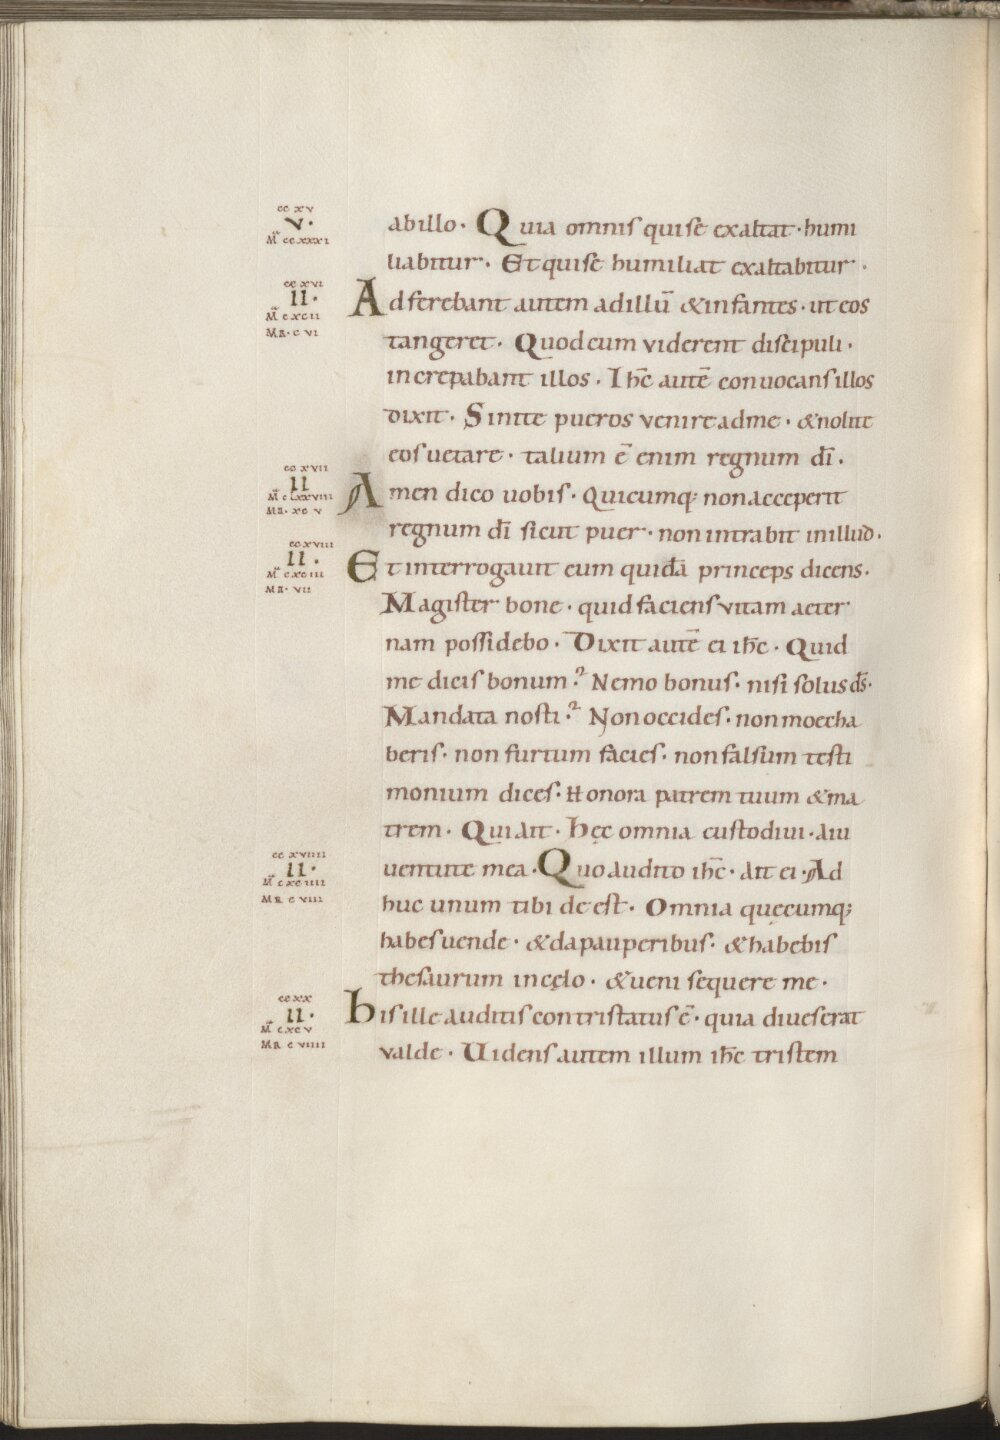 cc xv
v·
M̄ ccxxxi
abillo· Quia omnis quise exaltat· humi
liabitur· Et quise humiliat exaltabitur·
cc xvi
II·
M̄ cxcii
MR· c vi
Adferebant autem adillū &infantes· ut eos
tangeret· Quodcum viderent discipuli·
increpabant illos· Ihc̄ autē conuocans illos
dixit· Sinite pueros venire adme· &nolite
eos uetare· talium ē enim regnum dī·
cc xvii
II
M̄ clxxviii
MR· xc v
Amen dico uobis· Quicumq; non acceperit
regnum dī sicut puer· non intrabit inillud·
cc xviii
II·
M̄ cxciii
MR· vii
Et interrogauit eum quidā princeps dicens·
Magister bone· quid faciens vitam aeter
nam possidebo· Dixit autē ei ihc̄· Quid
me dicis bonum·? Nemo bonus· nisi solus ds̄·
Mandata nosti·? Non occides· non moecha
beris· non furtum facies· non falsum testi
monium dices· Honora patrem tuum &ma
trem· Qui ait· hęc omnia custodiui· aiu
cc xviiii
II·
M̄ cxciiii
MR c viii
uentute mea· Quo audito ihc̄· ait ei· Ad
huc unum tibi deest· Omnia quęcumq;
habes uende· &da pauperibus· &habebis
thesaurum incęlo· &ueni sequere me·
cc xx
II·
M̄ cxcv
MR c viiii
his ille auditis contristatus ē· quia diues erat
valde· Uidens autem illum ihc̄ tristem